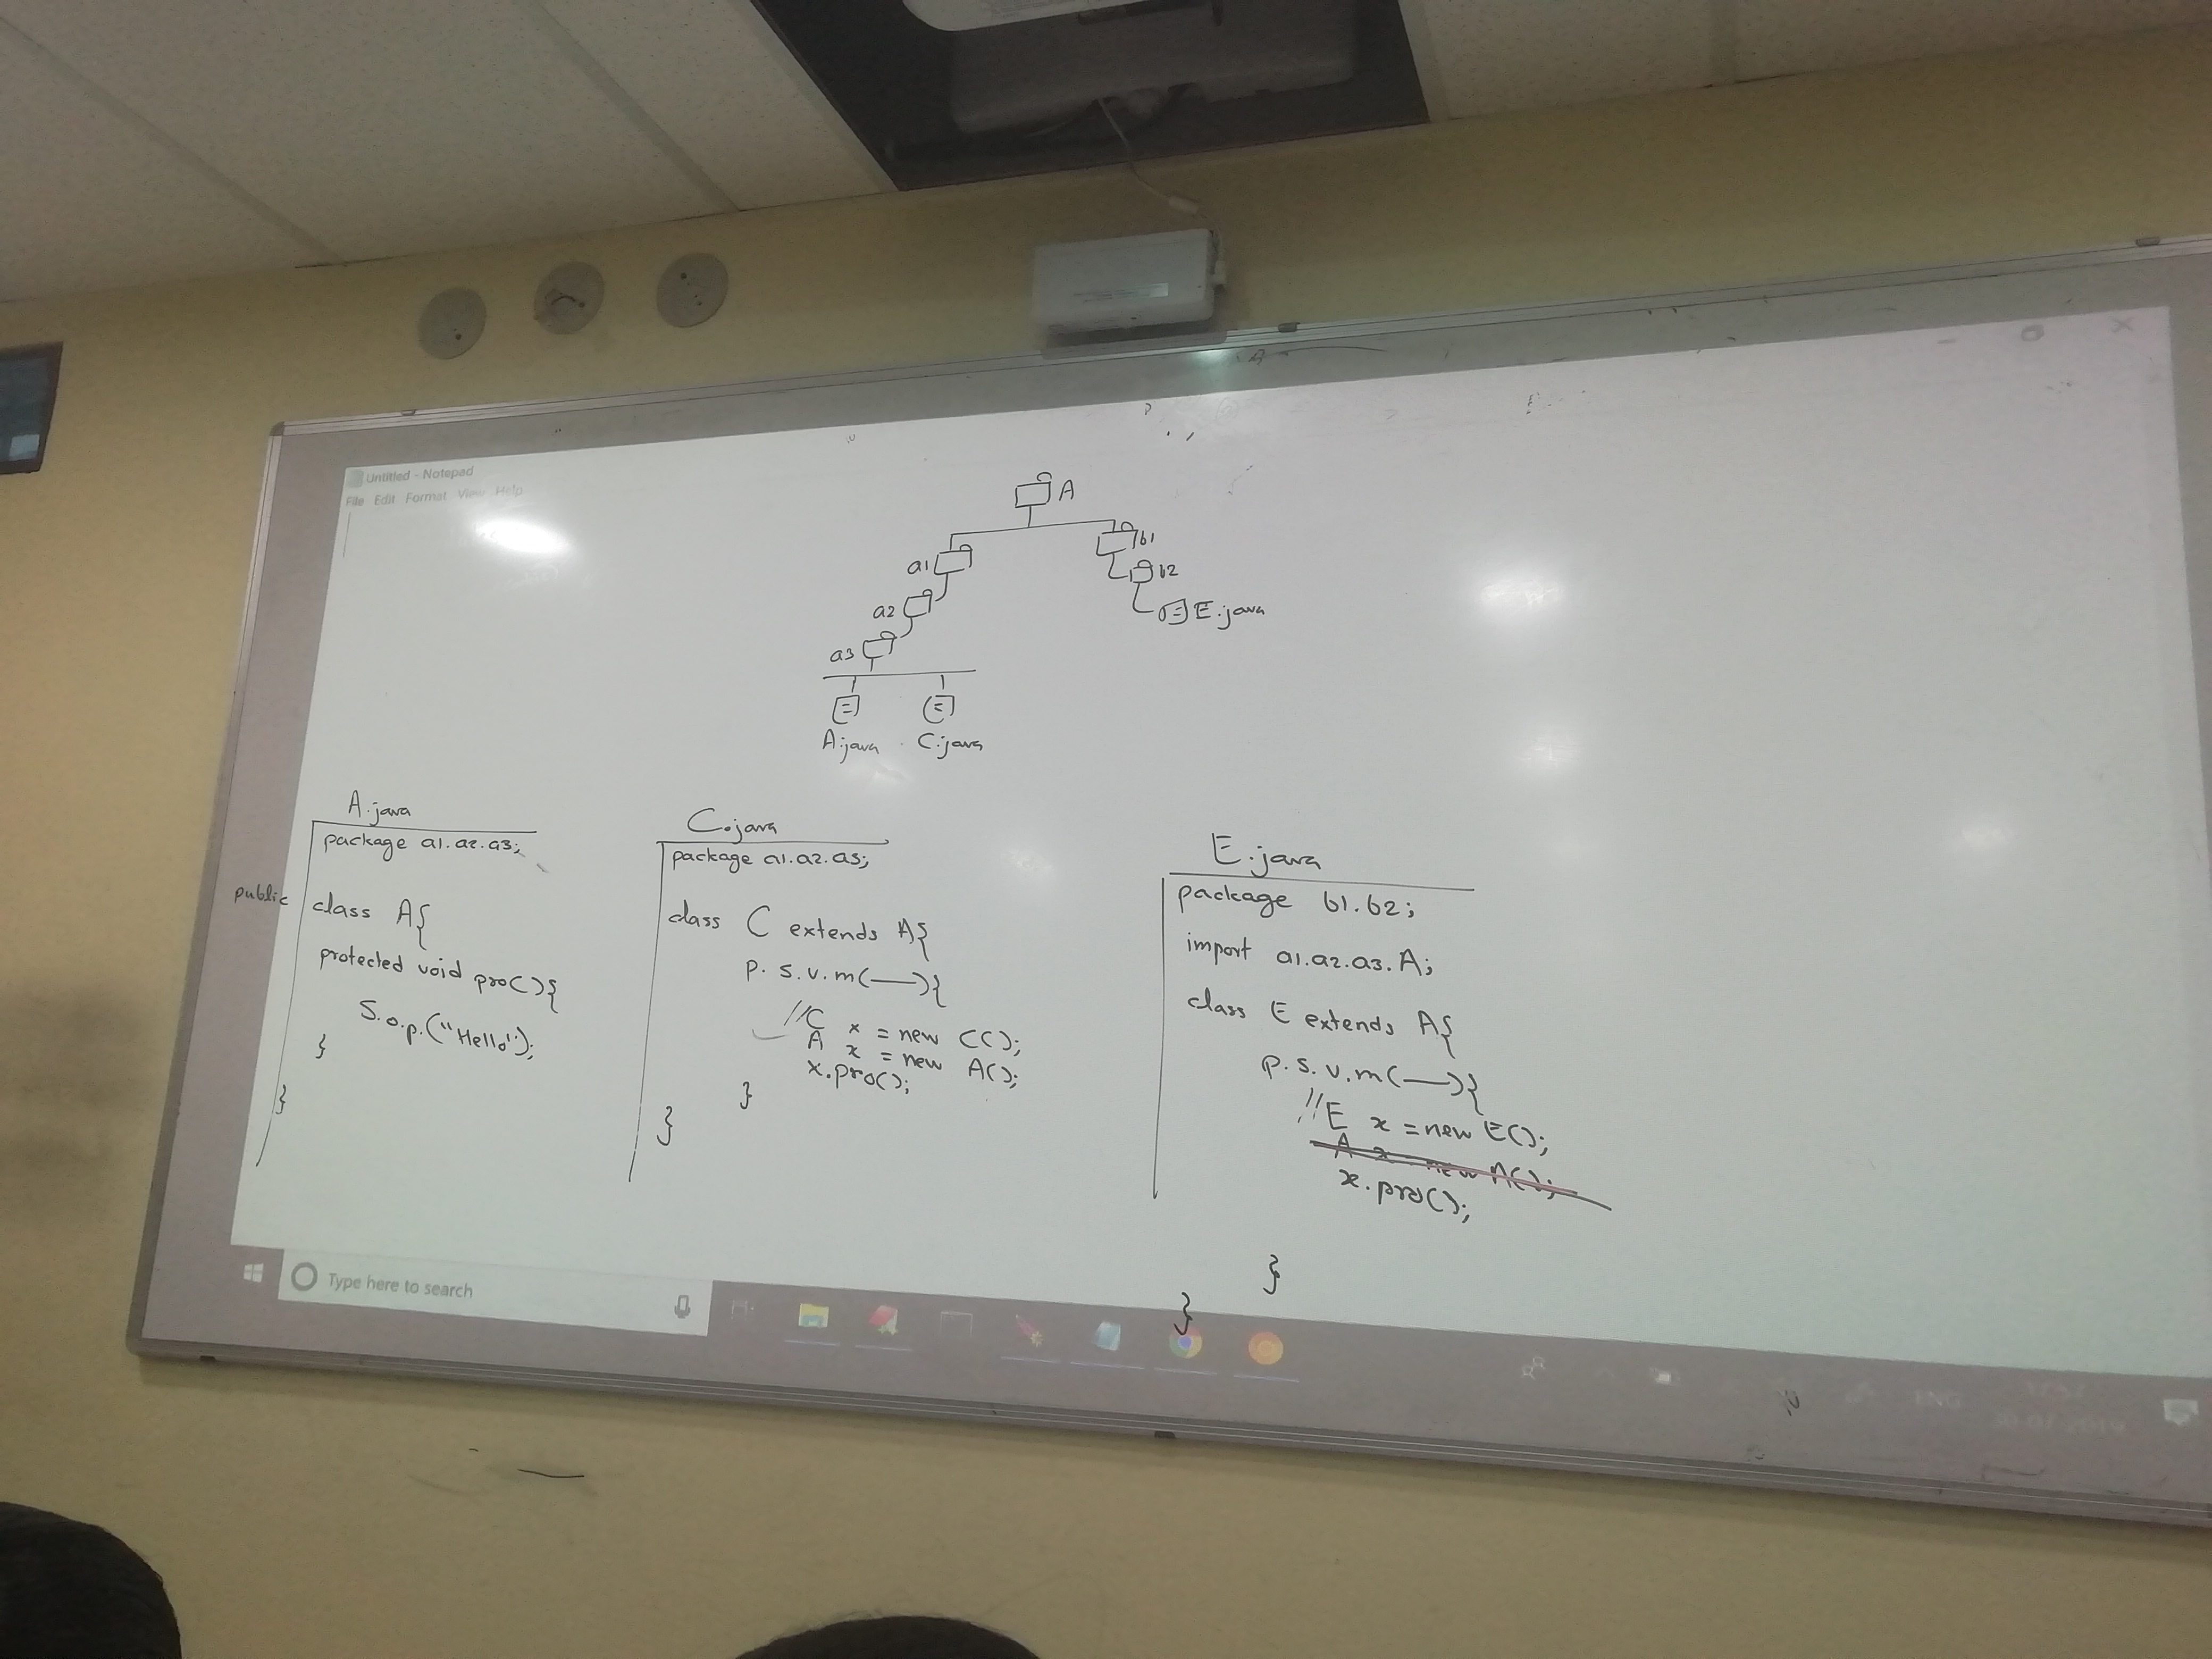 Untitled - Notepad
File Edit Format View Help
A
a1
b1
a2
b2
E.java
a3
A.java
C.java
A.java
package a1.a2.a3;
public class A{
protected void pro(){
S.o.p.("Hello");
}
}
C.java
package a1.a2.a3;
class C extends A{
p. s. v. m(—){
//C x = new C();
A x = new A();
x.pro();
}
}
E.java
package b1.b2;
import a1.a2.a3.A;
class E extends A{
p. s. v. m(—){
//E x = new E();
A x = new A();
x.pro();
}
}
Type here to search
ENG